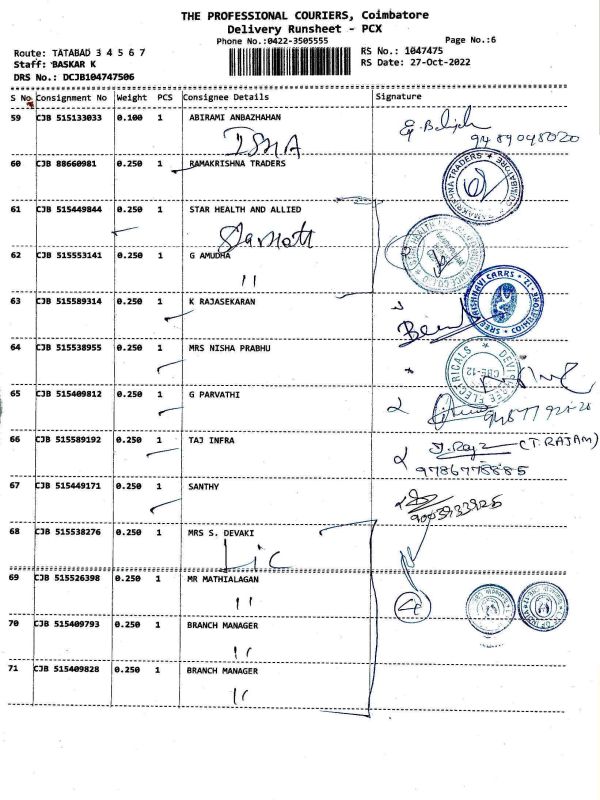 THE PROFESSIONAL COURIERS, Coimbatore
Delivery Runsheet - PCX
Phone No.:0422-3505555
Page No.:6
Route: TATABAD 3 4 5 6 7
RS No.: 1047475
Staff: BASKAR K
RS Date: 27-Oct-2022
DRS No.: DCJB104747506
S No Consignment No Weight PCS Consignee Details Signature
59 CJB 515133033 0.100 1 ABIRAMI ANBAZHAHAN
9489048020
60 CJB 88660981 0.250 1 RAMAKRISHNA TRADERS
RAMAKRISHNA TRADERS * COIMBATORE *
61 CJB 515449844 0.250 1 STAR HEALTH AND ALLIED
62 CJB 515553141 0.250 1 G AMUDHA
11
63 CJB 515589314 0.250 1 K RAJASEKARAN
SREE VAISHNAVI CARRS * COIMBATORE - 12 *
64 CJB 515538955 0.250 1 MRS NISHA PRABHU
DEVI SREE ELECTRICALS * CBE-12
65 CJB 515409812 0.250 1 G PARVATHI
66 CJB 515589192 0.250 1 TAJ INFRA
(T.RAJAM)
9786778885
67 CJB 515449171 0.250 1 SANTHY
9003933925
68 CJB 515538276 0.250 1 MRS S. DEVAKI
LIC
69 CJB 515526398 0.250 1 MR MATHIALAGAN
11
70 CJB 515409793 0.250 1 BRANCH MANAGER
11
71 CJB 515409828 0.250 1 BRANCH MANAGER
11